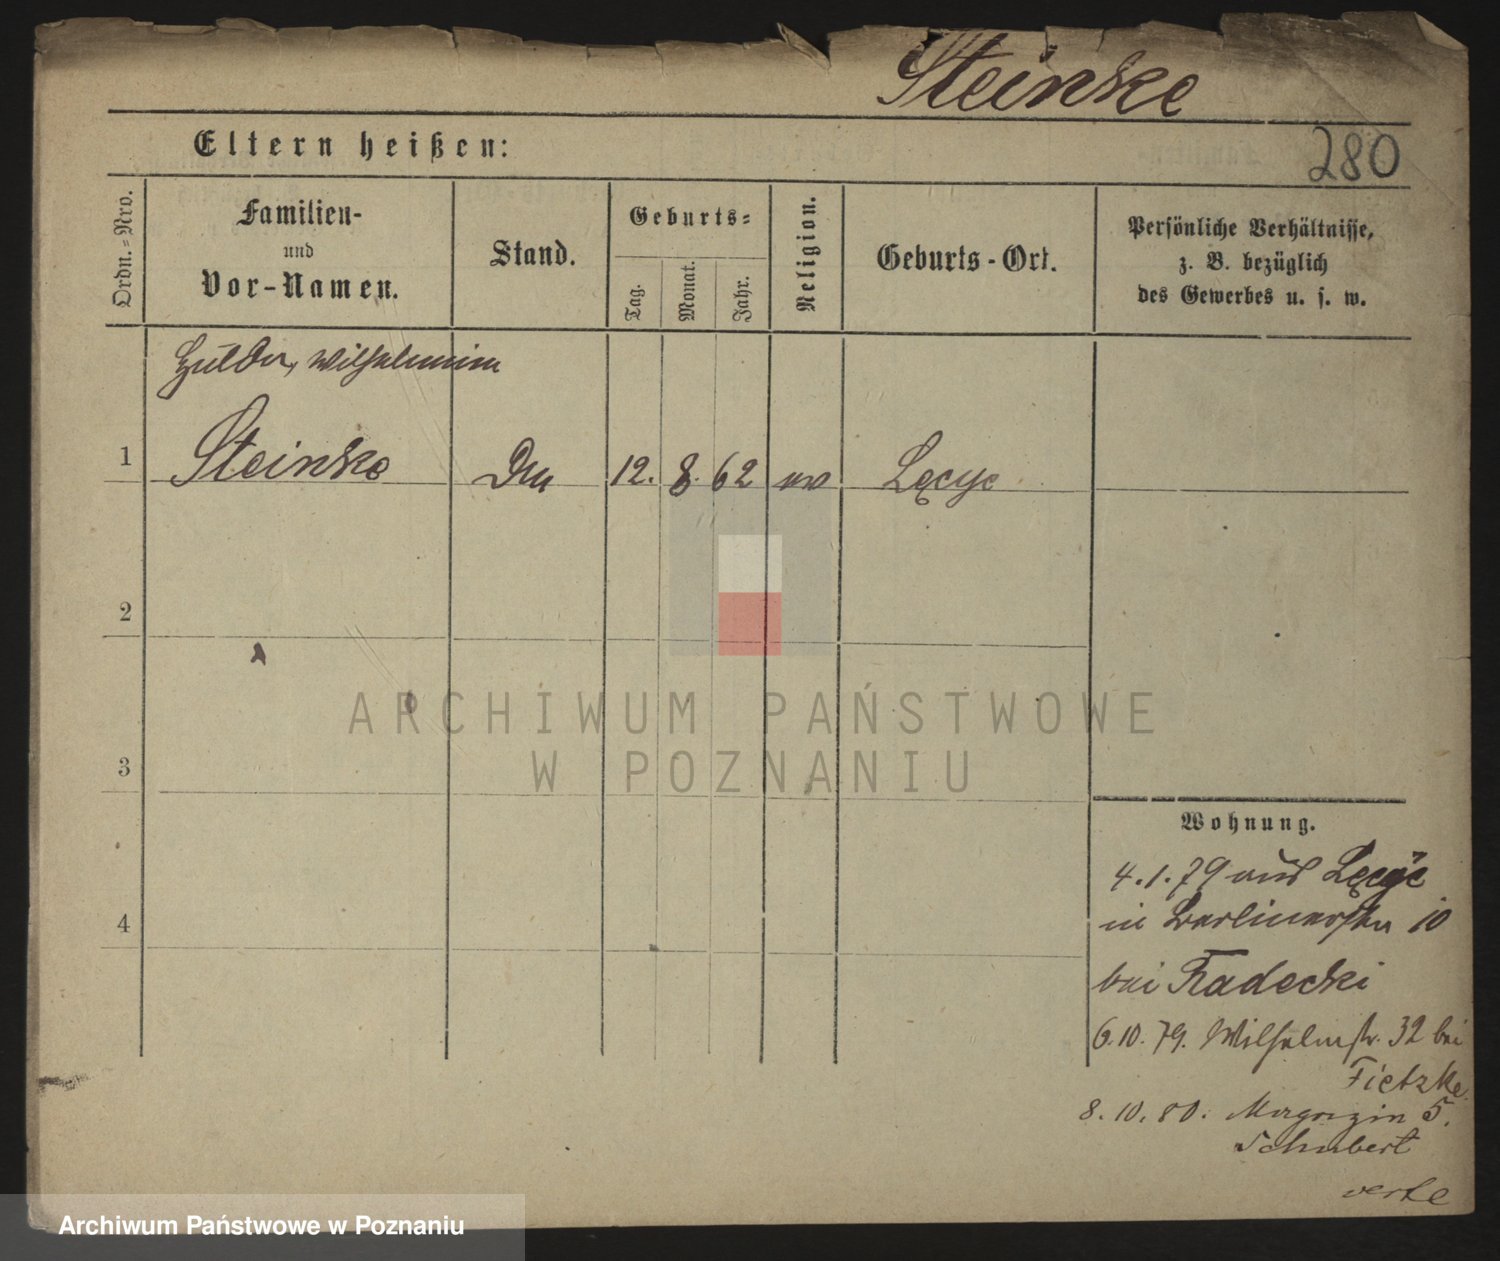 Steinke
Eltern heißen:
280
Ordn.-Nro.
Familien-
und
Vor-Namen.
Stand.
Geburts-
Tag.
Monat.
Jahr.
Religion.
Geburts-Ort.
Persönliche Verhältnisse,
z. B. bezüglich
des Gewerbes u. s. w.
Hulda, Wilhelmine
1 Steinke 12. 8. 62 ev Lęcyc
2
3
4
Wohnung.
4.1.79 aus Lęcyc
in Berlinerstr 10
bei Radecki
6.10.79. Wilhelmstr. 32 bei
Fietzke.
8.10.80. Magazin 5.
Schubert
verte
ARCHIWUM PAŃSTWOWE
W POZNANIU
Archiwum Państwowe w Poznaniu